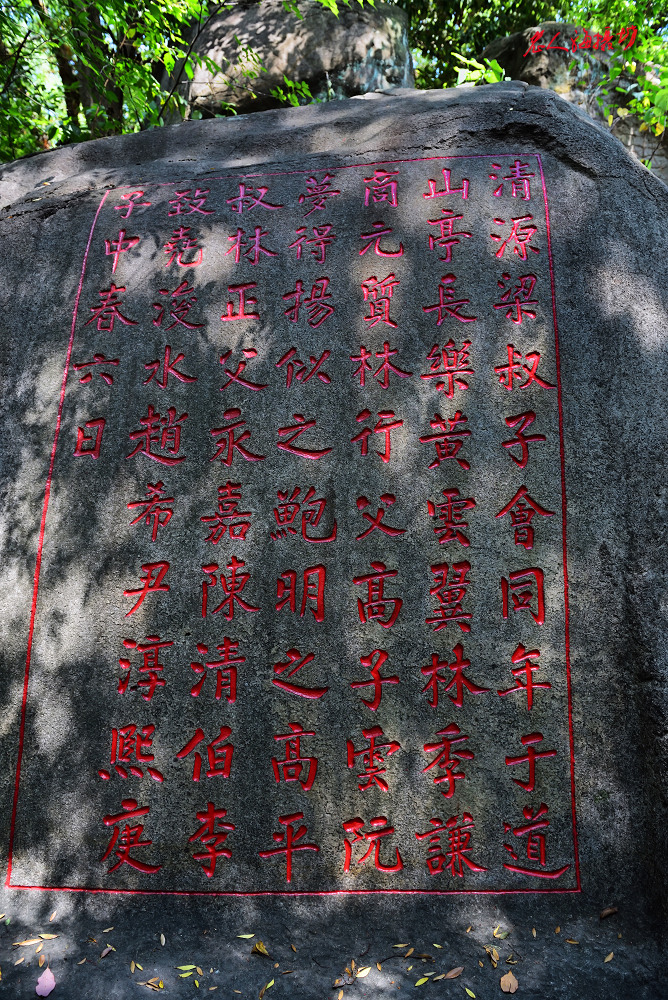 清源梁叔子會同年于道
山亭長樂黄雲翼林季謙
商元質林行父高子雲阮
夢得揚似之鮑明之高平
叔林正父永嘉陳清伯李
致堯浚水趙希尹淳熙庚
子中春六日